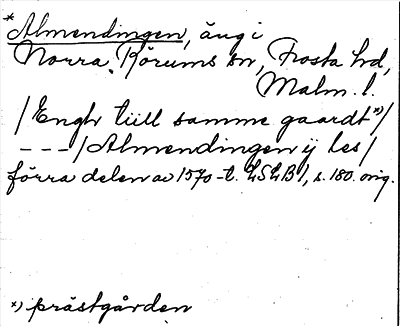 * Almendingen, äng i
Norra Rörums sn, Frosta hd,
Malm. l.
/Engh tiill samme gaardt *)/
---/Almendingen ij les/
förra delen av 1570-t. LSLB1, s. 180. orig.
*) prästgården